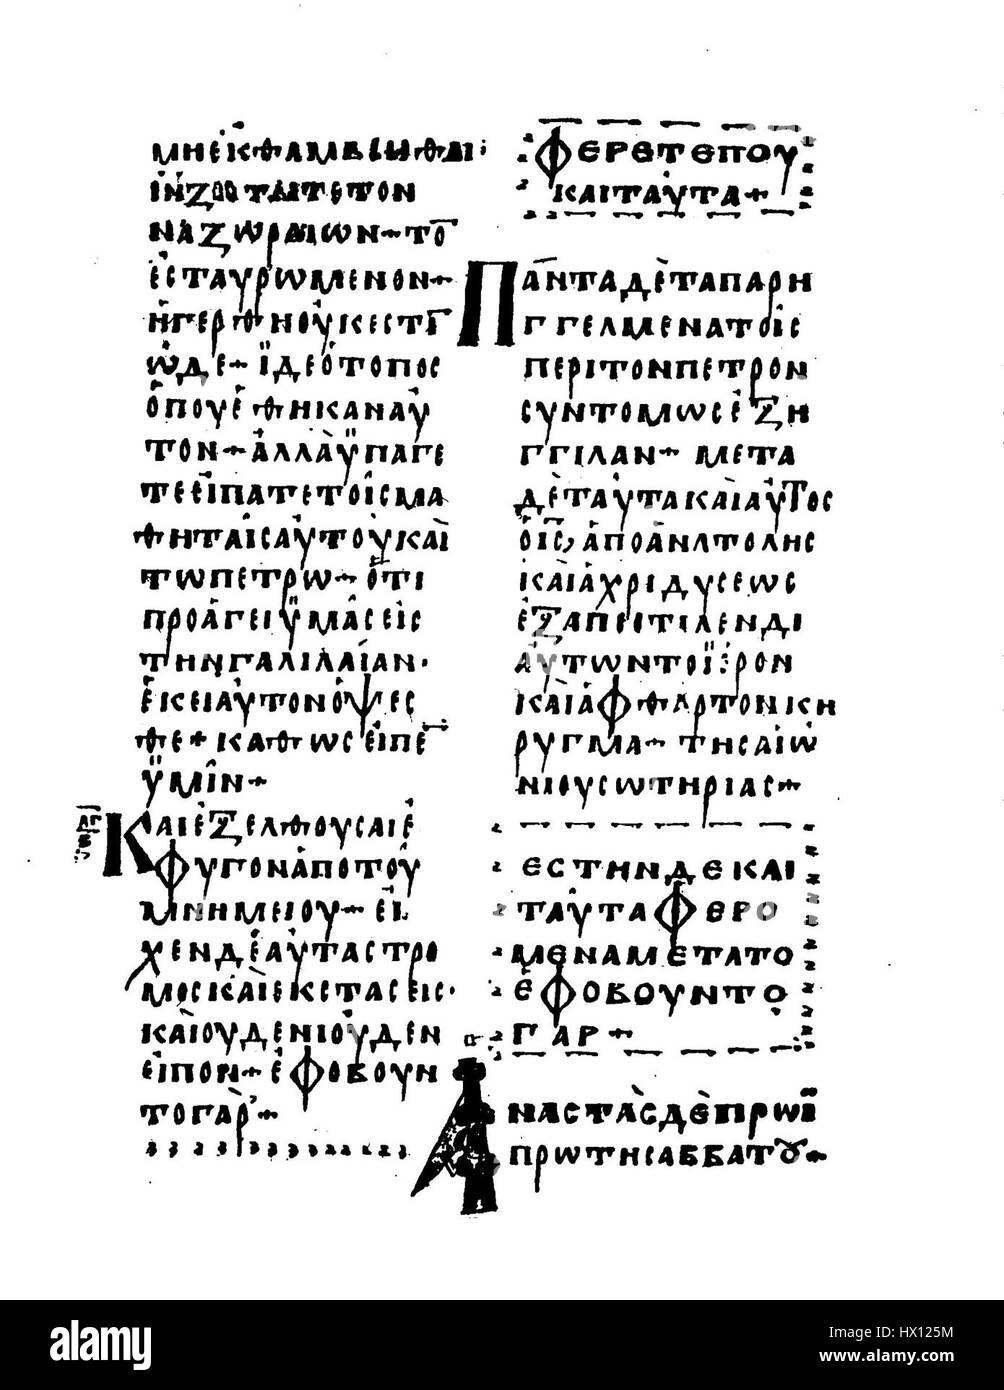 ΜΗΕΚΘΑΜΒΕΙΣΘΑΙ·
ΙΝΖΗΤΕΙΤΕΤΟΝ
ΝΑΖΩΡΑΙΟΝ+ΤΟ̄
ἘΣΤΑΥΡΩΜΕΝΟΝ+
ἨΓΕΡΘΗΟΥΚΕΣΤῙ
ὩΔΕ+ΪΔΕὉΤΟΠΟΣ
ὉΠΟΥἘΘΗΚΑΝΑΥ
ΤΟΝ+ἈΛΛᾺΫΠΑΓΕ
ΤΕΕἸΠΑΤΕΤΟΙ͂ΣΜΑ
ΘΗΤΑΙ͂ΣΑΥΤΟΥ͂ΚΑῚ
ΤΩΠΕΤΡΩ+ὍΤΙ
ΠΡΟΆΓΕΙΫΜΑ͂ΣΕἸΣ
ΤΗΝΓΑΛΙΛΑΊΑΝ·
ἘΚΕΙΑΥΤΟΝΟΨΕΣ
ΘΕ+ΚΑΘΩΣΕΙΠΕ̄
ΫΜΙ͂Ν+
ΚΑΙΕΞΕΛΘΟΥΣΑΙΕ
ΦΥΓΟΝΑΠΟΤΟΥ
ΜΝΗΜΕΙΟΥ+ΕΙ
ΧΕΝΔΕΑΥΤΑΣΤΡΟ
ΜΟΣΚΑΙΕΚΣΤΑΣΕΙΣ·
ΚΑΙΟΥΔΕΝΙΟΥΔΕΝ
ΕΙΠΟΝ+ΕΦΟΒΟΥΝ
ΤΟΓΑΡ+
ΦΕΡΕΤΕΠΟΥ
ΚΑΙΤΑΥΤΑ+
ΠΑΝΤΑΔΕΤΑΠΑΡΗ
ΓΓΕΛΜΕΝΑΤΟΙΣ
ΠΕΡΙΤΟΝΠΕΤΡΟΝ
ΣΥΝΤΟΜΩΣΕΞΗ
ΓΓΙΛΑΝ+ΜΕΤΑ
ΔΕΤΑΥΤΑΚΑΙΑΥΤΟΣ
ΟΙ̅Σ̅,ΑΠΟΑΝΑΤΟΛΗΣ
ΚΑΙΑΧΡΙΔΥΣΕΩΣ
ΕΞΑΠΕΣΤΙΛΕΝΔΙ
ΑΥΤΩΝΤΟΪΕΡΟΝ
ΚΑΙΑΦΘΑΡΤΟΝΚΗ
ΡΥΓΜΑ+ΤΗΣΑΙΩ
ΝΙΟΥΣΩΤΗΡΙΑΣ+
ΕΣΤΗΝΔΕΚΑΙ
ΤΑΥΤΑΦΕΡΟ
ΜΕΝΑΜΕΤΑΤΟ
ΕΦΟΒΟΥΝΤΟ
ΓΑΡ+
ΑΝΑΣΤΑΣΔΕΠΡΩΪ
ΠΡΩΤΗΣΑΒΒΑΤΟΥ+
alamy
Image ID: HX125M
www.alamy.com